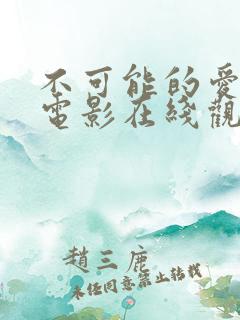 不可能的愛
電影在綫觀
趙三鹿
未经同意禁止转载